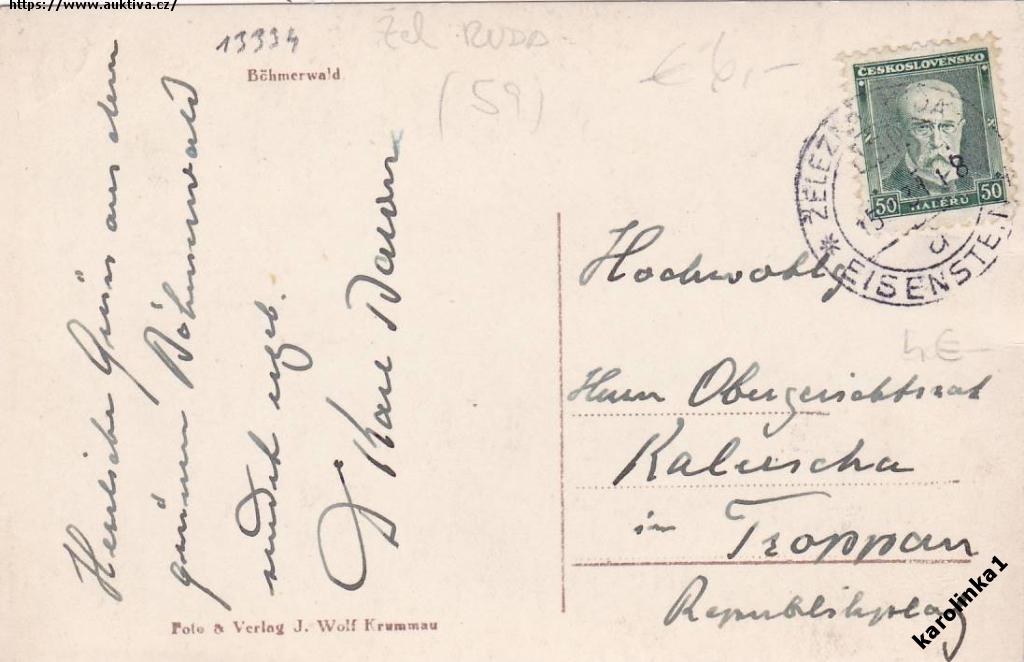 https://www.auktiva.cz/
13334
Žel RUDA
(59)
€ 6,-
Böhmerwald
ČESKOSLOVENSKO
50 HALÉŘŮ 50
ŽELEZNÁ RUDA
* EISENSTEIN
Herzliche Grüße aus dem
grünen Böhmerwald
sendet ergeb.
Hochwohlg
4 €-
Herrn Obergerichtsrat
Kaluscha
in Troppau
Republikplatz
karolinka1
Foto & Verlag J. Wolf Krummau